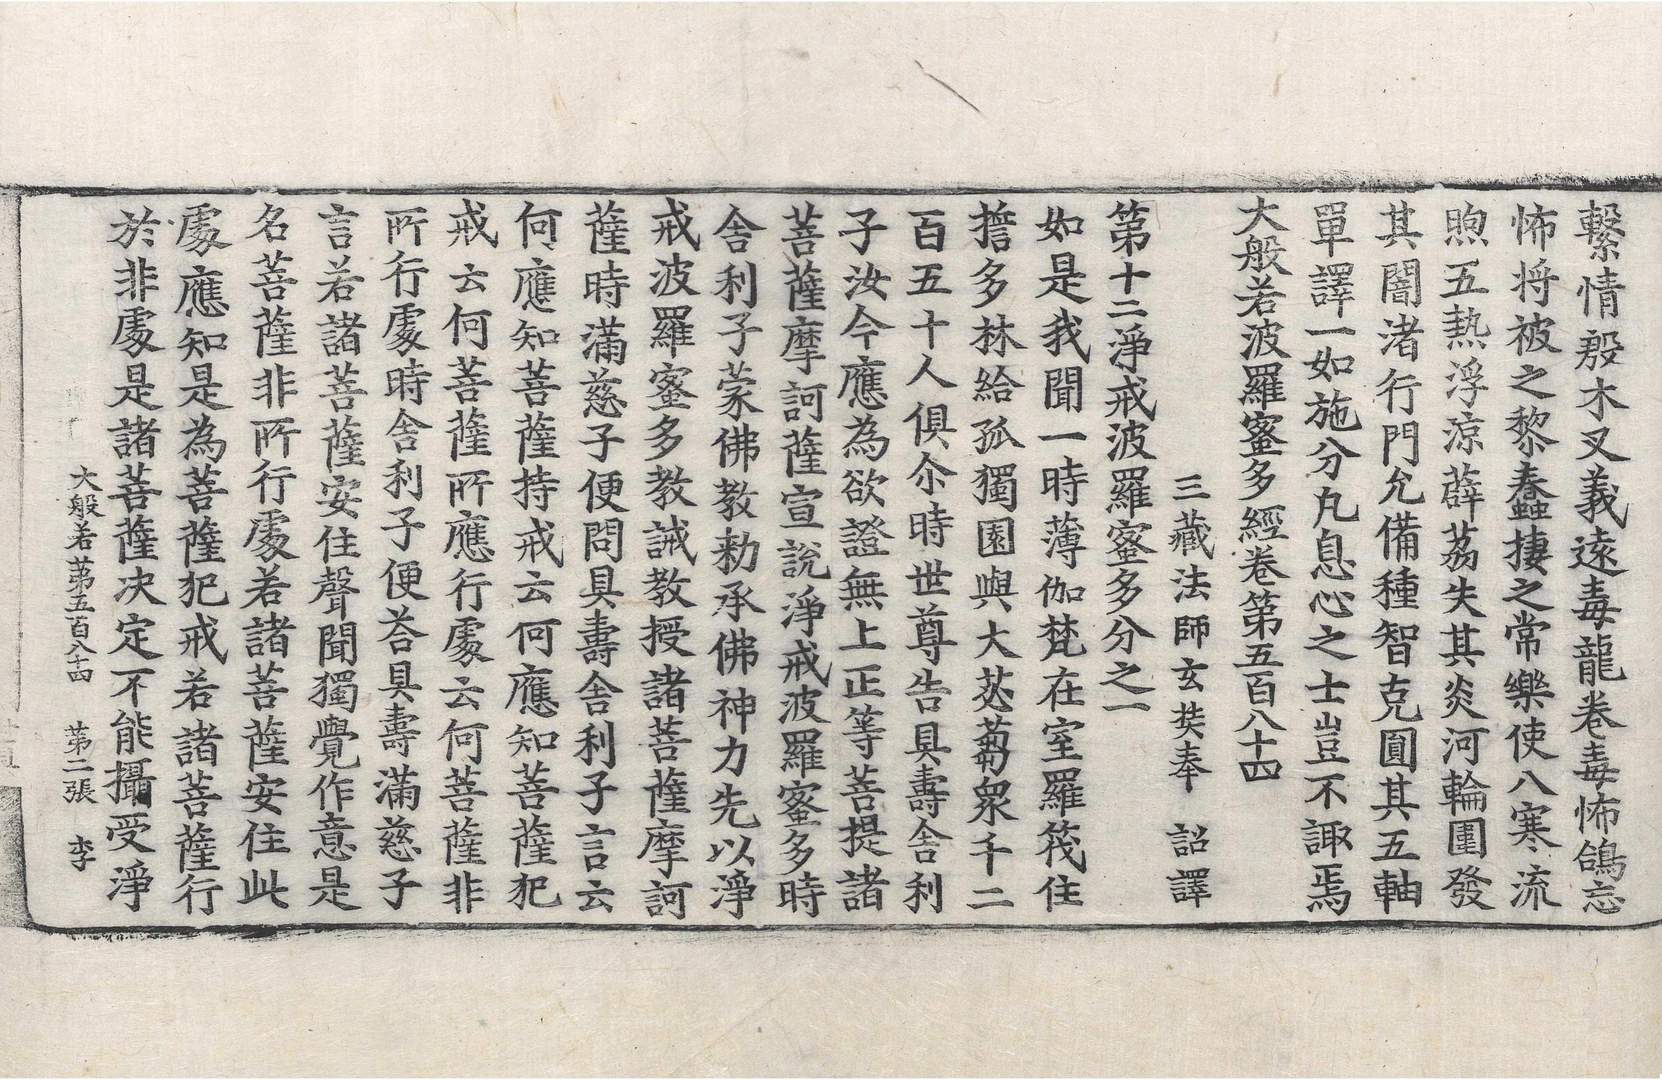 繫情般木叉義遠毒龍卷毒怖鴿忘
怖将被之黎蠢捿之常樂使八寒流
煦五熱浮涼薜荔失其炎河輪圉發
其闇渚行門允備種智克圓其五軸
單譯一如施分凡息心之士豈不諏焉
大般若波羅蜜多經卷第五百八十四
三藏法師玄奘奉 詔譯
第十二淨戒波羅蜜多分之一
如是我聞一時薄伽梵在室羅筏住
誓多林給孤獨園與大苾蒭衆千二
百五十人俱尒時世尊告具壽舍利
子汝今應為欲證無上正等菩提諸
菩薩摩訶薩宣說淨戒波羅蜜多時
舍利子蒙佛教勑承佛神力先以淨
戒波羅蜜多教誡教授諸菩薩摩訶
薩時滿慈子便問具壽舍利子言云
何應知菩薩持戒云何應知菩薩犯
戒云何菩薩所應行處云何菩薩非
所行處時舍利子便荅具壽滿慈子
言若諸菩薩安住聲聞獨覺作意是
名菩薩非所行處若諸菩薩安住此
處應知是為菩薩犯戒若諸菩薩行
於非處是諸菩薩决定不能攝受淨
大般若第五百八十四 第二張 李